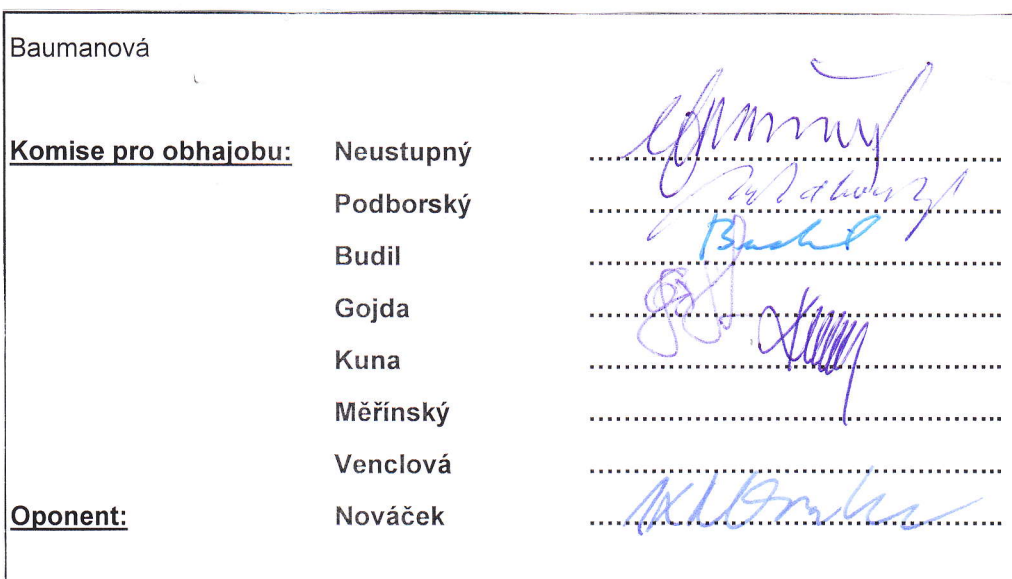 Baumanová
Komise pro obhajobu: Neustupný
Podborský
Budil
Gojda
Kuna
Měřínský
Venclová
Oponent: Nováček